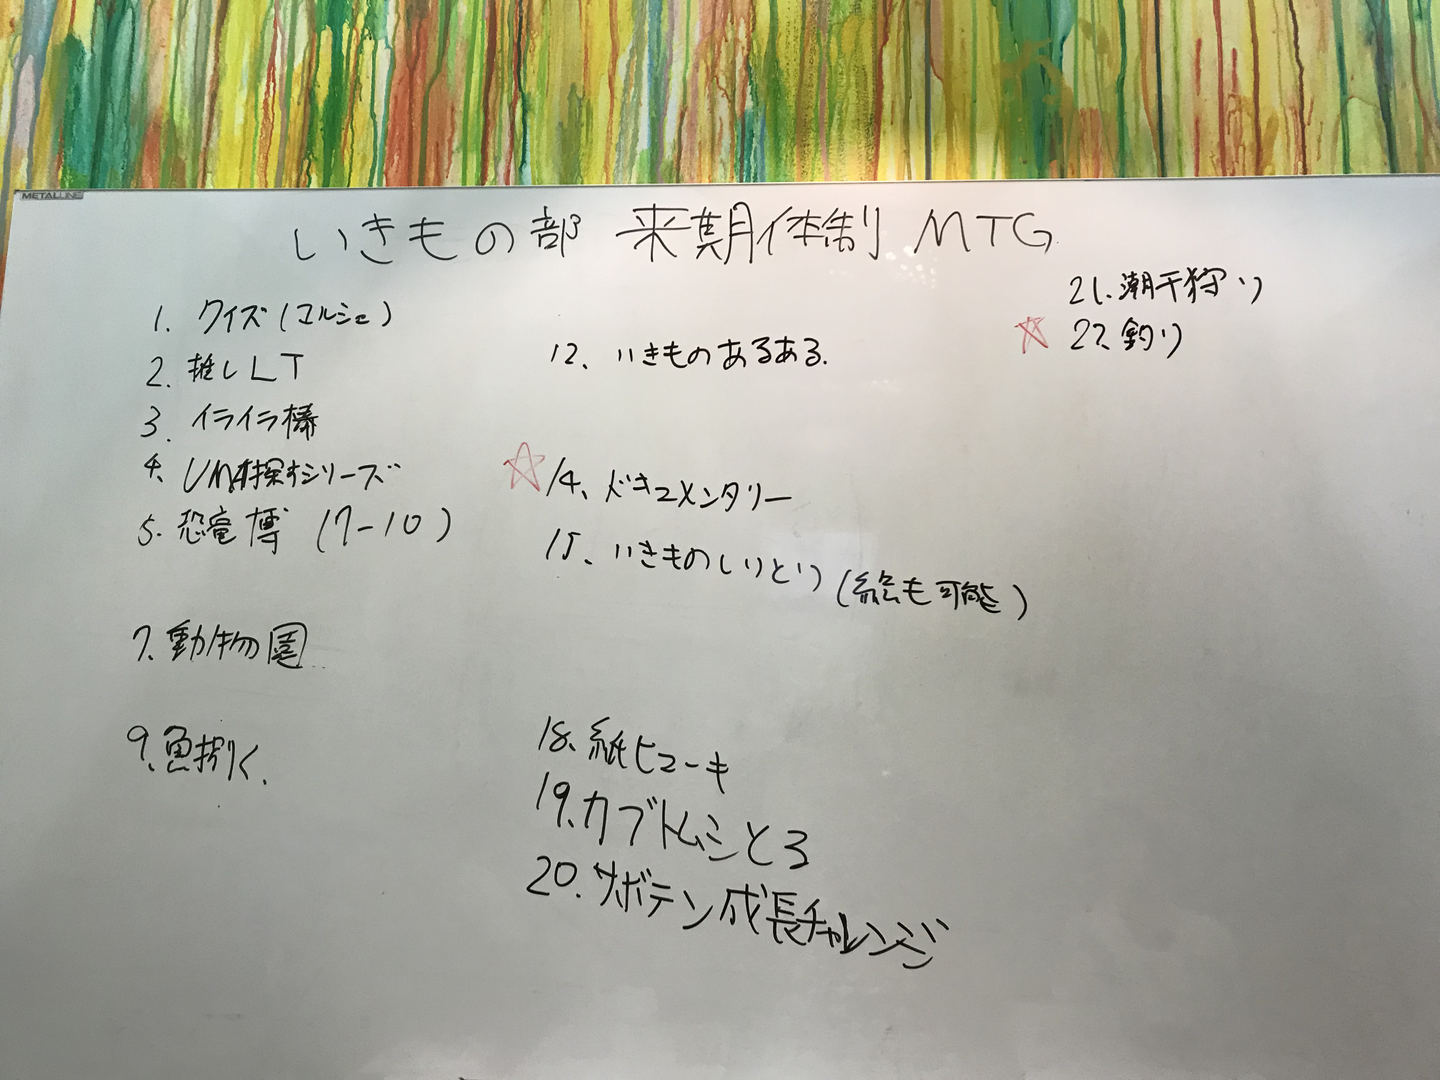 METALLINE
いきもの部 来期体制 MTG
1. クイズ(マルシェ)
2. 推しLT
3. イライラ棒
4. UMA探すシリーズ
5. 恐竜博 (7-10)
7. 動物園
9. 魚捌く.
12. いきものあるある.
☆14. ドキュメンタリー
15. いきものしりとり(絵も可能)
18. 紙ヒコーキ
19. カブトムシとる
20. サボテン成長チャレンジ
21. 潮干狩り
☆22. 釣り